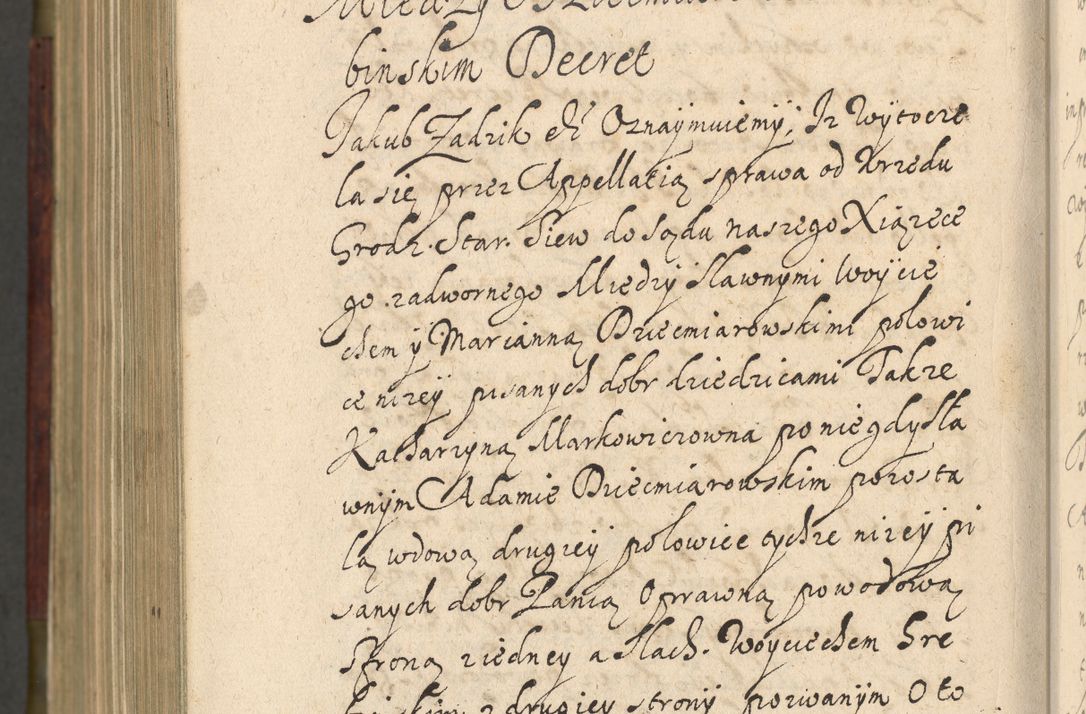 binskim Decret
Jakub Zadzik etc Oznaymuiemÿ, Iż Wÿtocze
la się przez Appellatią sprawa od Vrzedu
Grodz. Star. Siew do sądu naszego Xiążęce
go zadwornego Miedzÿ sławnymi Woÿcie
chem ÿ Marianną Dzieemiarowskimi połowi
ce niżeÿ pisanych dobr dziedzicami Także
Katharzyną Markowiczowna po niegdy sła
wnÿm Adamie Dzieemiarowskim pozosta
łą wdową drugieÿ połowice tychże niżeÿ pi
sanych dobr Panią Oprawną powodową
stroną z iedney a Slach. Woyciechem Gre
binskim z drugiey strony pozwanÿm O to